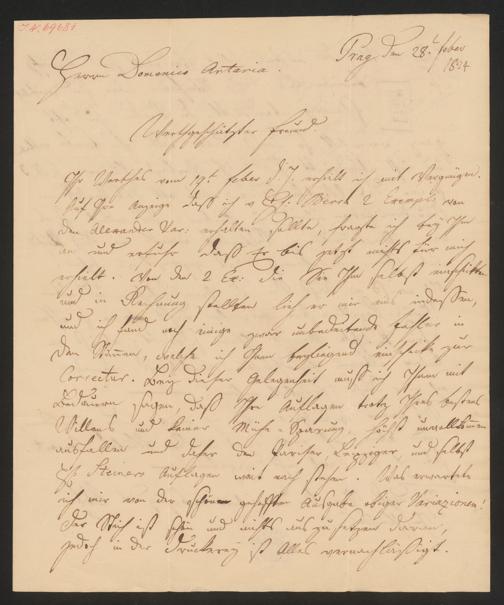 I.N. 69681
Prag den 28t Feber
1824
Herrn Domenico Artaria.
Werthgeschätzter Freund.
Ihr Werthes vom 17t Feber d J. erhielt ich mit Vergnügen.
Auf Ihre Anzeige daß ich v 2 Exempl: von
den Alexander Var: erhalten sollte, fragte ich bey Ihm
an und erfuhr daß Er bis jetzt nichts für mich
erhielt. Von den 2 Ex: die Sie Ihm selbst
und in Rechnung stellten lieh er mir eins indessen,
und ich fand noch einige zwar unbedeutende Fehler in
den Stimmen, welche ich Ihnen beyliegend einschicke zur
Correctur. Bey dieser Gelegenheit muß ich Ihnen mit
Bedauern sagen, daß Ihre Auflagen trotz Ihres besten
Willens und keiner Mühe-Sparung, höchst unvollkommen
ausfallen und daher den Pariser, Leipziger, und selbst
Steiners Auflagen weit nach stehen. Was erwartete
ich mir von der schön gehofften Ausgabe obiger Variazionen!
Der Stich ist schön und nichts auszusetzen daran,
jedoch in der Druckerey ist Alles vernachläßigt.